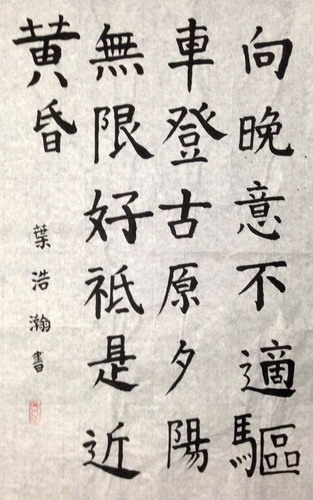 向晚意不適驅
車登古原夕陽
無限好祇是近
黃昏
葉浩瀚書